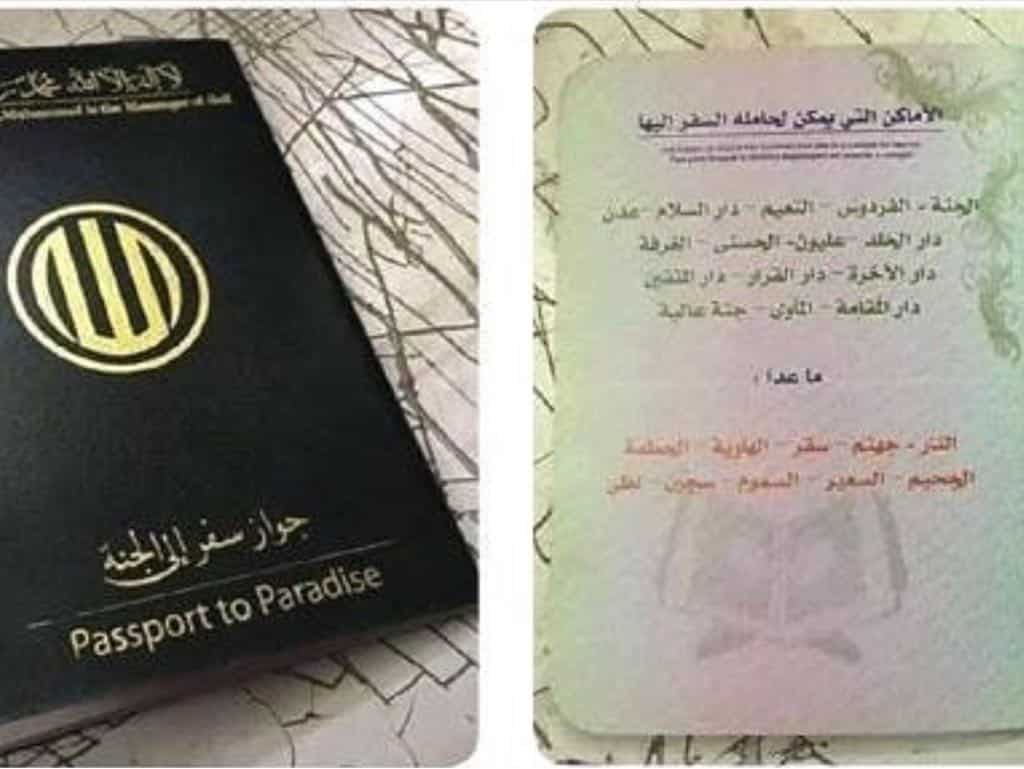 لا إله إلا الله محمد
Mohammed is the Messenger of
جواز سفر إلى الجنة
Passport to Paradise
الأماكن التي يمكن لحامله السفر اليها
الجنة - الفردوس - النعيم - دار السلام - عدن
دار الخلد - عليون - الحسنى - الغرفة
دار الآخرة - دار القرار - دار المتقين
دار المقامة - المأوى - جنة عالية
ما عدا :
النار - جهنم - سقر - الهاوية - الحطمة
الجحيم - السعير - السموم - سجين - لظى